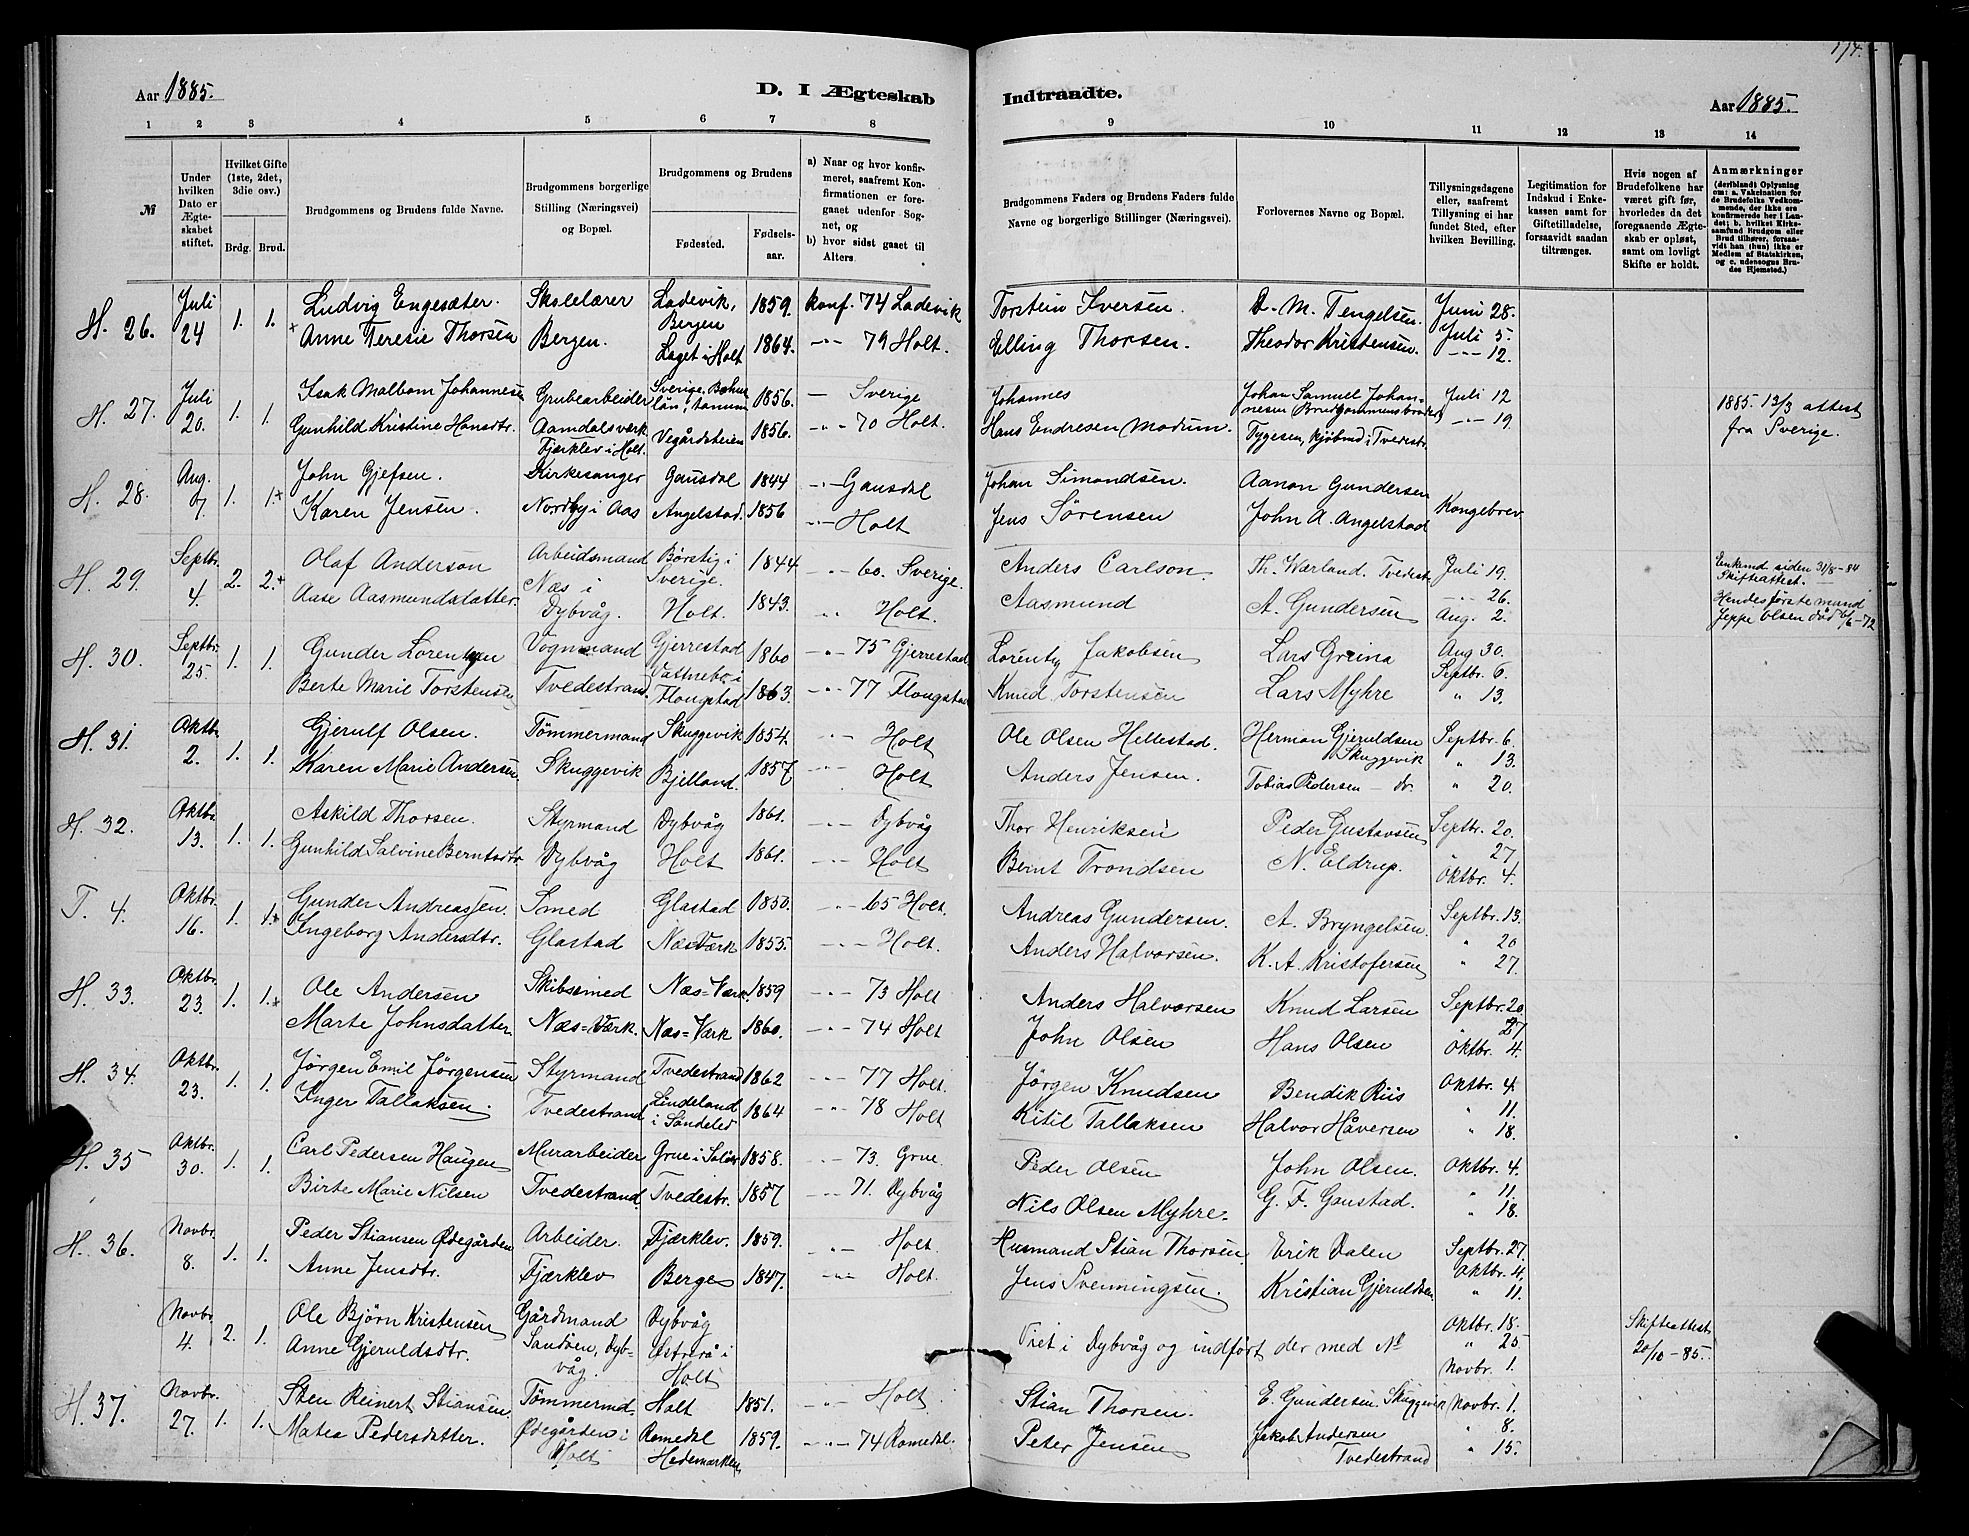 174.
Aar 1885.
D. I Ægteskab Indtraadte.
Aar 1885.
1 2 3 4 5 6 7 8 9 10 11 12 13 14
№
Under hvilken Dato er Ægteskabet stiftet.
Hvilket Gifte (1ste, 2det, 3die osv.)
Brdg. Brud.
Brudgommens og Brudens fulde Navne.
Brudgommens borgerlige Stilling (Næringsvei) og Bopæl.
Brudgommens og Brudens
Fødested. Fødselsaar.
a) Naar og hvor konfirmeret, saafremt Konfirmationen er foregaaet udenfor Sognet, og
b) hvor sidst gaaet til Alters.
Brudgommens Faders og Brudens Faders fulde Navne og borgerlige Stillinger (Næringsvei).
Forlovernes Navne og Bopæl.
Tillysningsdagene eller, saafremt Tillysning ei har fundet Sted, efter hvilken Bevilling.
Legitimation for Indskud i Enkekassen samt for Giftetilladelse, forsaavidt saadan tiltrænges.
Hvis nogen af Brudefolkene har været gift før, hvorledes da det foregaaende Ægteskab er opløst, samt om lovligt Skifte er holdt.
Anmærkninger
(deriblandt Oplysning om: a. Vakcination for de Brudefolks Vedkommende, der ikke ere konfirmerede her i Landet; b. hvilket Kirkesamfund Brudgom eller Brud tilhører, forsaavidt han (hun) ikke er Medlem af Statskirken, og c. udensogns Brudes Hjemsted.)
H. 26. Juli 24 1. 1. Ludvig Engesæter. Skolelærer Ladevik, Bergen 1859. konf. 74 Ladevik Torstein Iversen. D. M. Tengelsen. Juni 28.
Anne Teresie Thorsen Bergen. Laget i Holt 1864. -"- 79 Holt. Elling Thorsen. Theodor Kristensen. Juli 5. -"- 12.
H. 27. Juli 20. 1. 1. Isak Malbom Johannesen Grubearbeider Sverige, Bohuslän, Tanum 1856. — Sverige Johannes Johan Samuel Johannesen Brudgommens broder Juli 12 1885. 13/3 attest fra Sverige.
Gunhild Kristine Hansdtr. Aamdalsværk Fjærklev i Holt. Vegårdsheien 1856. -"- 70 Holt. Hans Endresen Modum. Tygesen, kjøbmd i Tvedestr. -"- 19.
H. 28. Aug. 7 1. 1. John Gjefsen. Kirkesanger Gausdal 1844 -"- Gausdal Johan Simondsen. Aanon Gundersen Kongebrev
Karen Jensen. Nordby i Aas Angelstad. 1856 -"- Holt Jens Sørensen John A. Angelstad
H. 29. Septbr. 4. 2. 2. Olaf Anderson Arbeidsmand Børstig i Sverige. 1844 -"- 60. Sverige. Anders Carlson. Th. Wærland. Tvedestr. Juli 19. Enkemd siden 31/8-84 Skifteattest.
Aase Aasmundsdatter. Næs i Dybvåg. Holt. 1843. -"- Holt. Aasmund A. Gundersen -"- 26. Aug. 2. Hendes første mand Jeppe Olsen død 6/6-72
H. 30. Septbr. 25. 1. 1. Gunder Lorentzen Vognmand Gjerrestad 1860 -"- 75 Gjerrestad Lorentz Jakobsen Lars Greina Aug 30.
Berte Marie Torstensen Tvedestrand. Vattnebo i Flougstad 1863. -"- 77 Flougstad Knud Torstensen Lars Myhre Septbr. 6. " 13.
H. 31. Oktbr. 2. 1. 1. Gjerulf Olsen. Tømmermand Skuggevik 1854. -"- Holt Ole Olsen Hellestad. Herman Gjeruldsen Skuggevik Septbr. 6.
Karen Marie Andersen. Skuggevik Bjelland. 1857 -"- Holt Anders Jensen. Tobias Pedersen - do. " 13. " 20.
H. 32. Oktbr. 13. 1. 1. Askild Thorsen. Styrmand Dybvåg 1861. -"- Dybvåg Thor Henriksen Peder Gustavsen Septbr. 20.
Gunhild Salvine Berntsdtr. Dybvåg Holt 1861. -"- Holt Bernt Trondsen N. Eldrup. " 27 Oktbr. 4.
T. 4. Oktbr. 16. 1. 1. Gunder Andreassen. Smed Glastad 1850. -"- 65 Holt. Andreas Gundersen. A. Bryngelsen. Septbr. 13.
Ingeborg Andersdtr. Glastad Næs Værk 1855. -"- Holt. Anders Halvorsen. K. A. Kristofersen " 20 " 27.
H. 33. Oktbr. 23. 1. 1. Ole Andersen Skibssmed Næs=Værk. 1859 -"- 73 Holt Anders Halvorsen Knud Larsen Septbr. 20.
Marte Johnsdatter. Næs=Værk. Næs=Værk 1860. -"- 74 Holt John Olsen Hans Olsen " 27 Oktbr. 4.
H. 34. Oktbr. 23. 1. 1. Jørgen Emil Jørgensen Styrmand Tvedestrand 1862 -"- 77 Holt. Jørgen Knudsen Bendik Riis Oktbr. 4.
Inger Tallaksen. Tvedestrand Lindeland i Søndeled 1864 -"- 78 Holt Kitil Tallaksen Halvor Håversen " 11. " 18.
H. 35 Oktbr. 30. 1. 1. Carl Pedersen Haugen Murarbeider Grue i Solør 1858. -"- 73. Grue Peder Olsen John Olsen. Oktbr. 4.
Birte Marie Nilsen Tvedestrand. Tvedestr. 1857 -"- 71. Dybvåg Nils Olsen Myhre. G. F. Goustad. " 11. " 18.
H. 36. Novbr. 8. 1. 1. Peder Stiansen Ødegården Arbeider. Fjærklev. 1859. -"- Holt. Husmand Stian Thorsen. Erik Dalen Septbr. 27.
Anne Jensdtr. Fjærklev Berge 1847. -"- Holt. Jens Svenningsen. Kristian Gjeruldsen. Oktbr. 4. " 11.
Novbr. 4. 2. 1. Ole Bjørn Kristensen Gårdmand Dybvåg Oktbr. 18. Skifteattest 20/10-85.
Anne Gjeruldsdtr. Sandøen, Dybvåg. Østerå i Holt Viet i Dybvåg og indført der med No " 25 Novbr. 1.
H. 37. Novbr. 27. 1. 1. Sten Reinert Stiansen. Tømmermd. Holt 1851. -"- Holt Stian Thorsen. E. Gundersen. Skuggevik Novbr. 1.
Matea Pedersdatter. Ødegården i Holt Romedal Hedemarken 1859. -"- 74 Romedal. Peter Jensen Jakob Andersen Tvedestrand " 8. " 15.